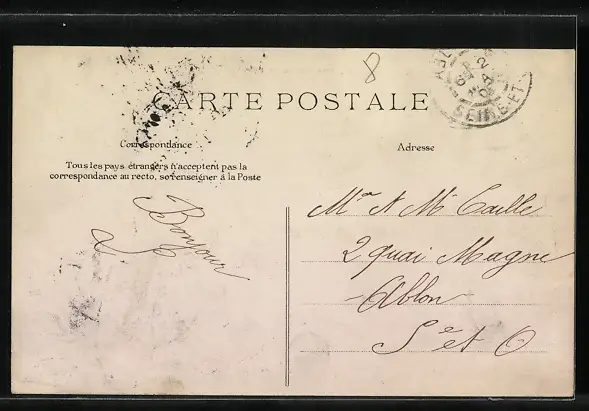 8
SEINE-ET
CARTE POSTALE
Correspondance
Adresse
Tous les pays étrangers n'acceptent pas la
correspondance au recto, se renseigner à la Poste
Bonjour
Mr et Me Caille
2 quai Magne
Ablon
S et O